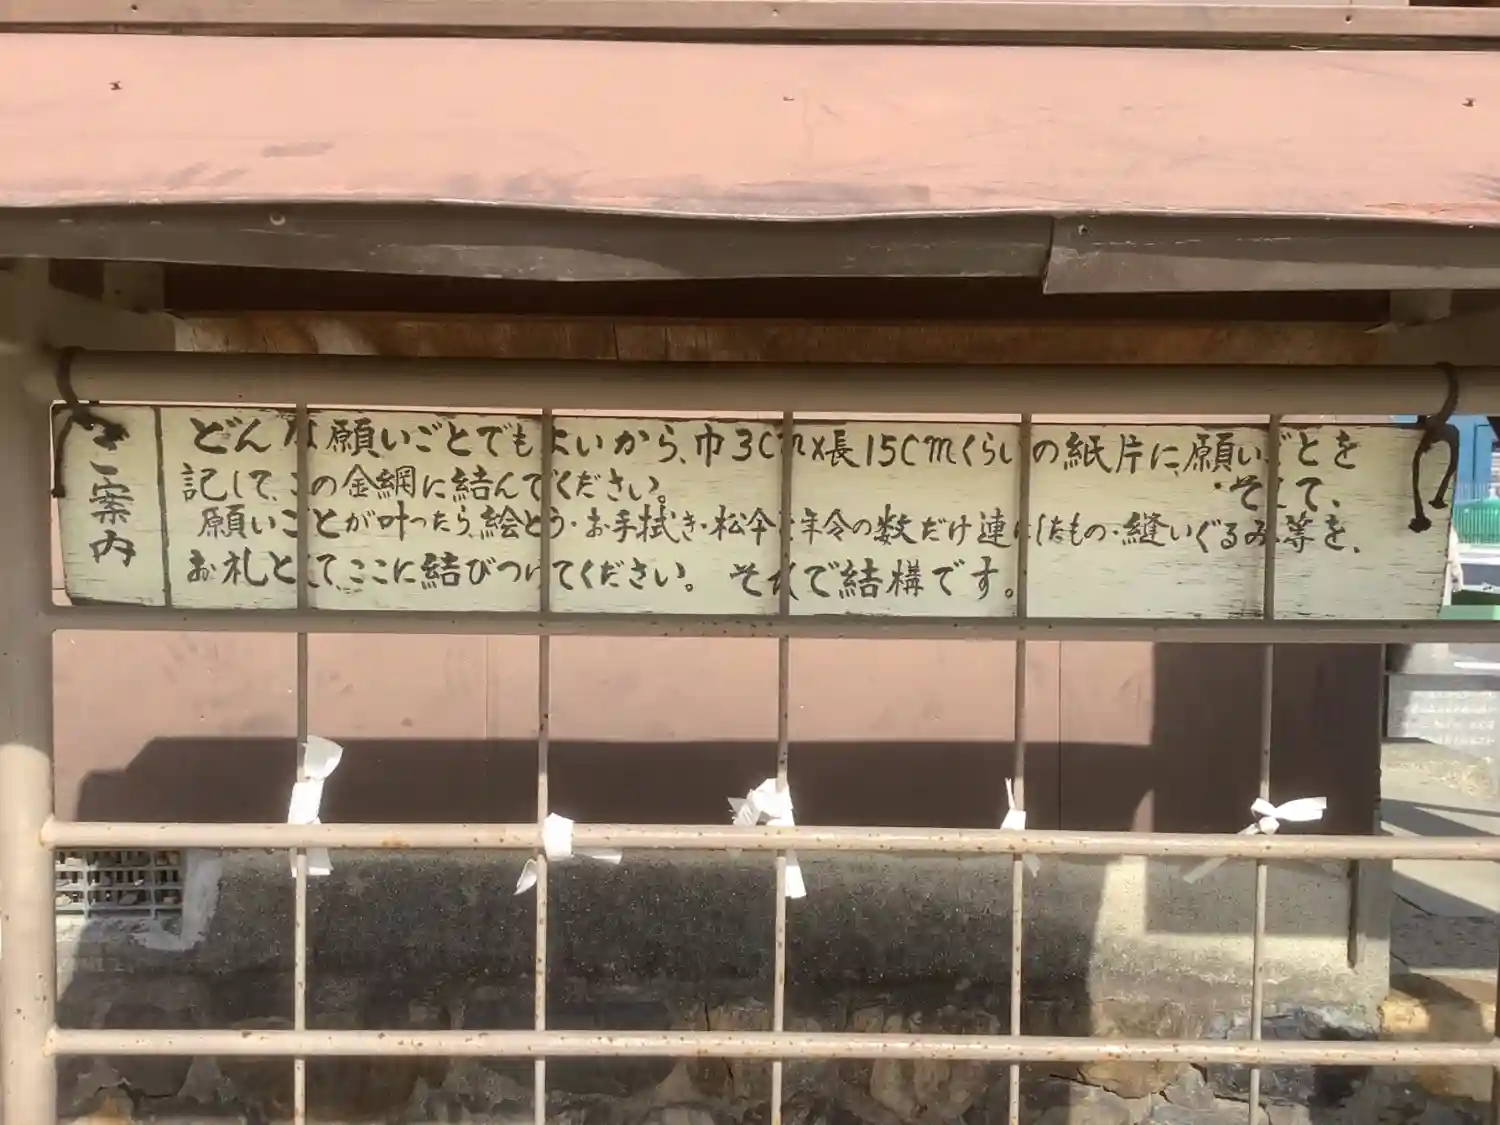 ご案内
どんな願いごとでもよいから、巾3cm×長15cmくらいの紙片に、願いごとを
記して、この金網に結んでください。・そして、
願いごとが叶ったら、絵とう・お手拭き・松傘を年令の数だけ連にしたもの・縫いぐるみ等を、
お札として、ここに結びつけてください。それで結構です。